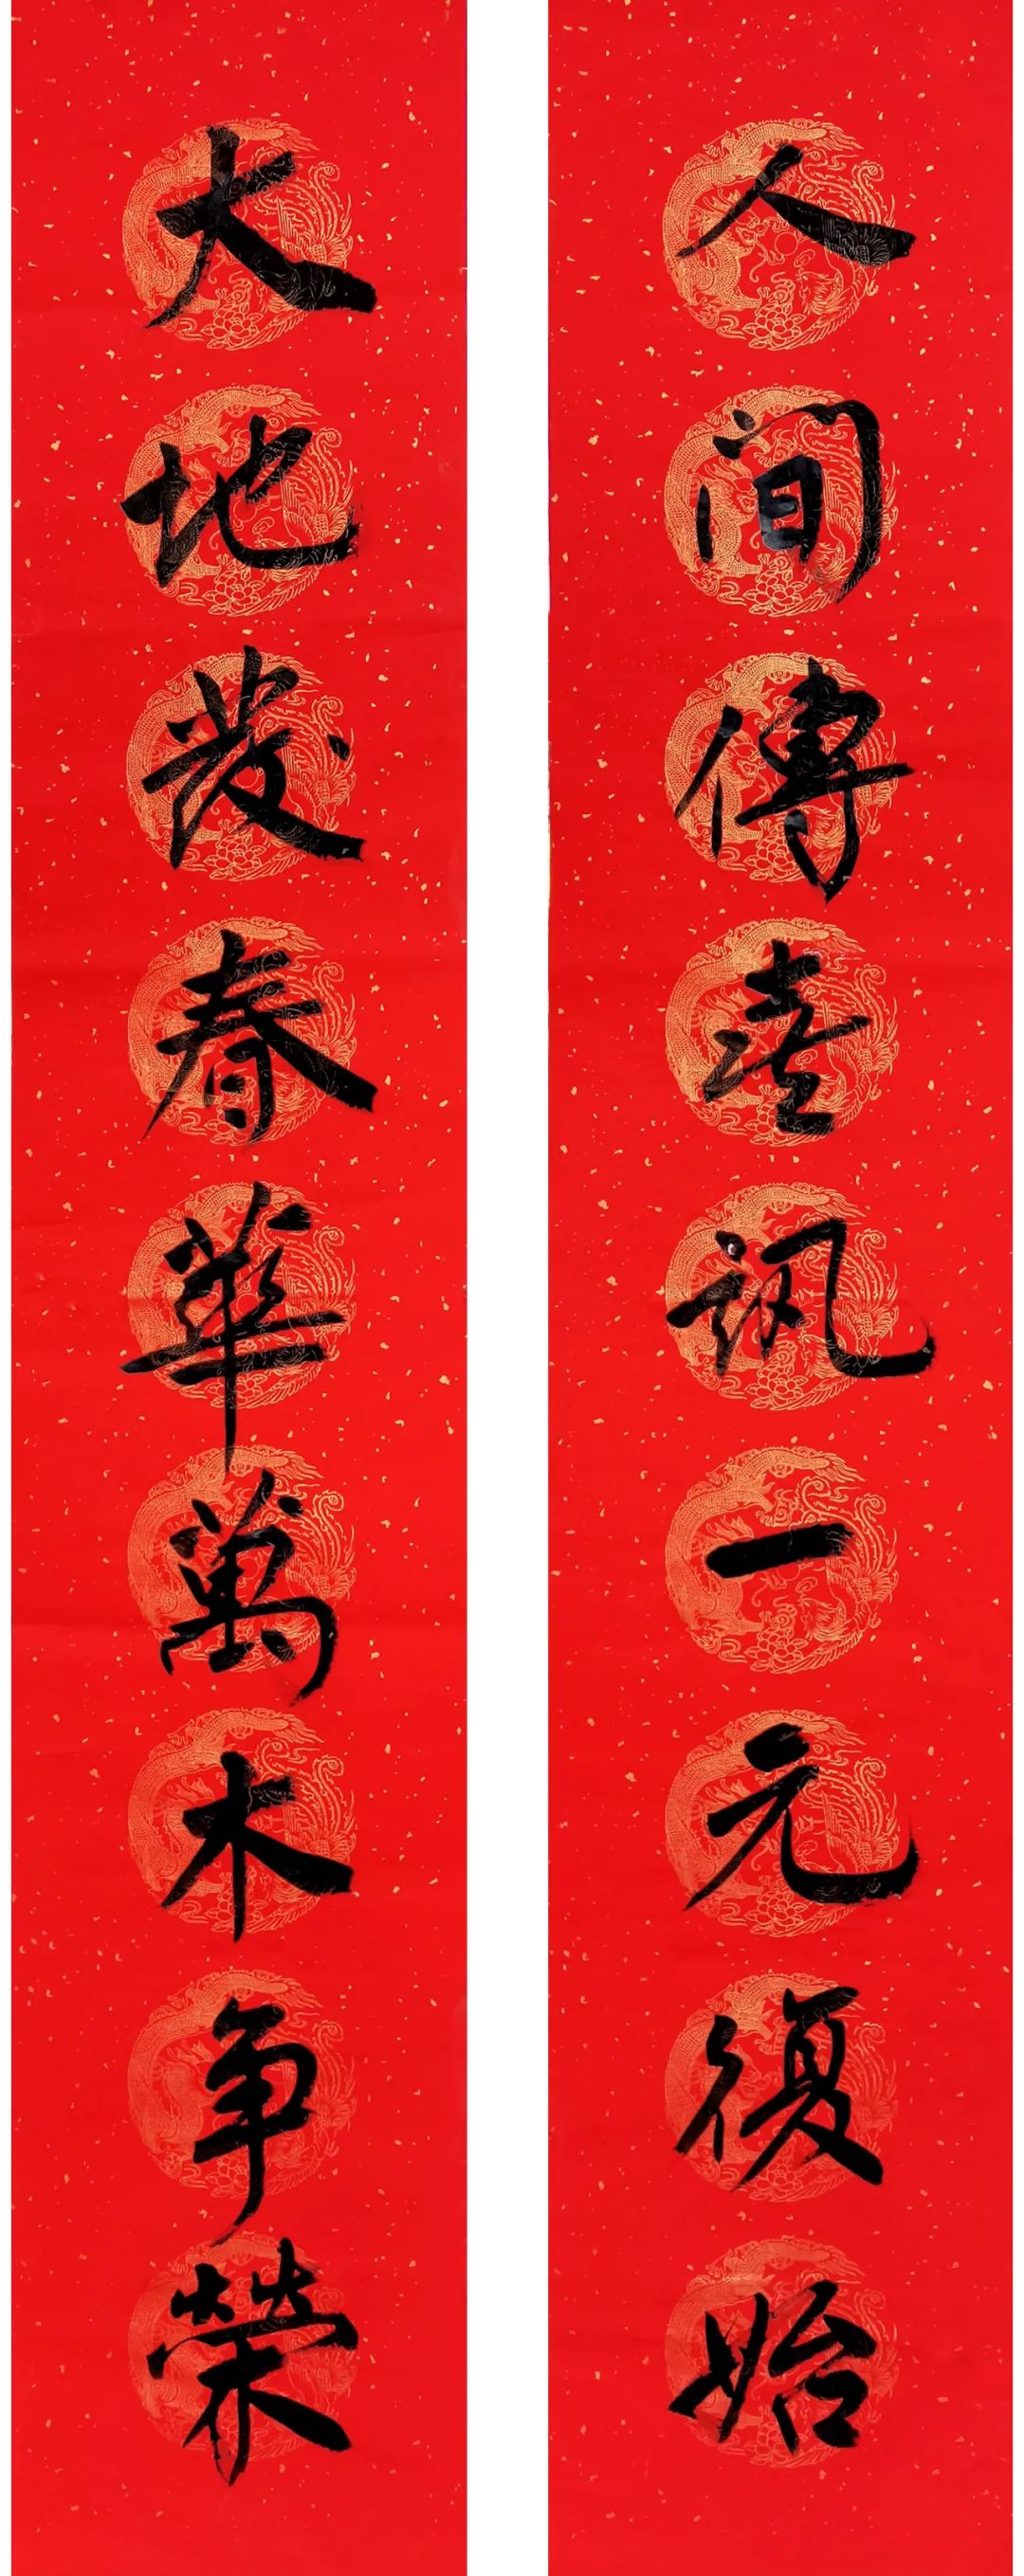 人间傳喜訊一元復始
大地發春華萬木争榮